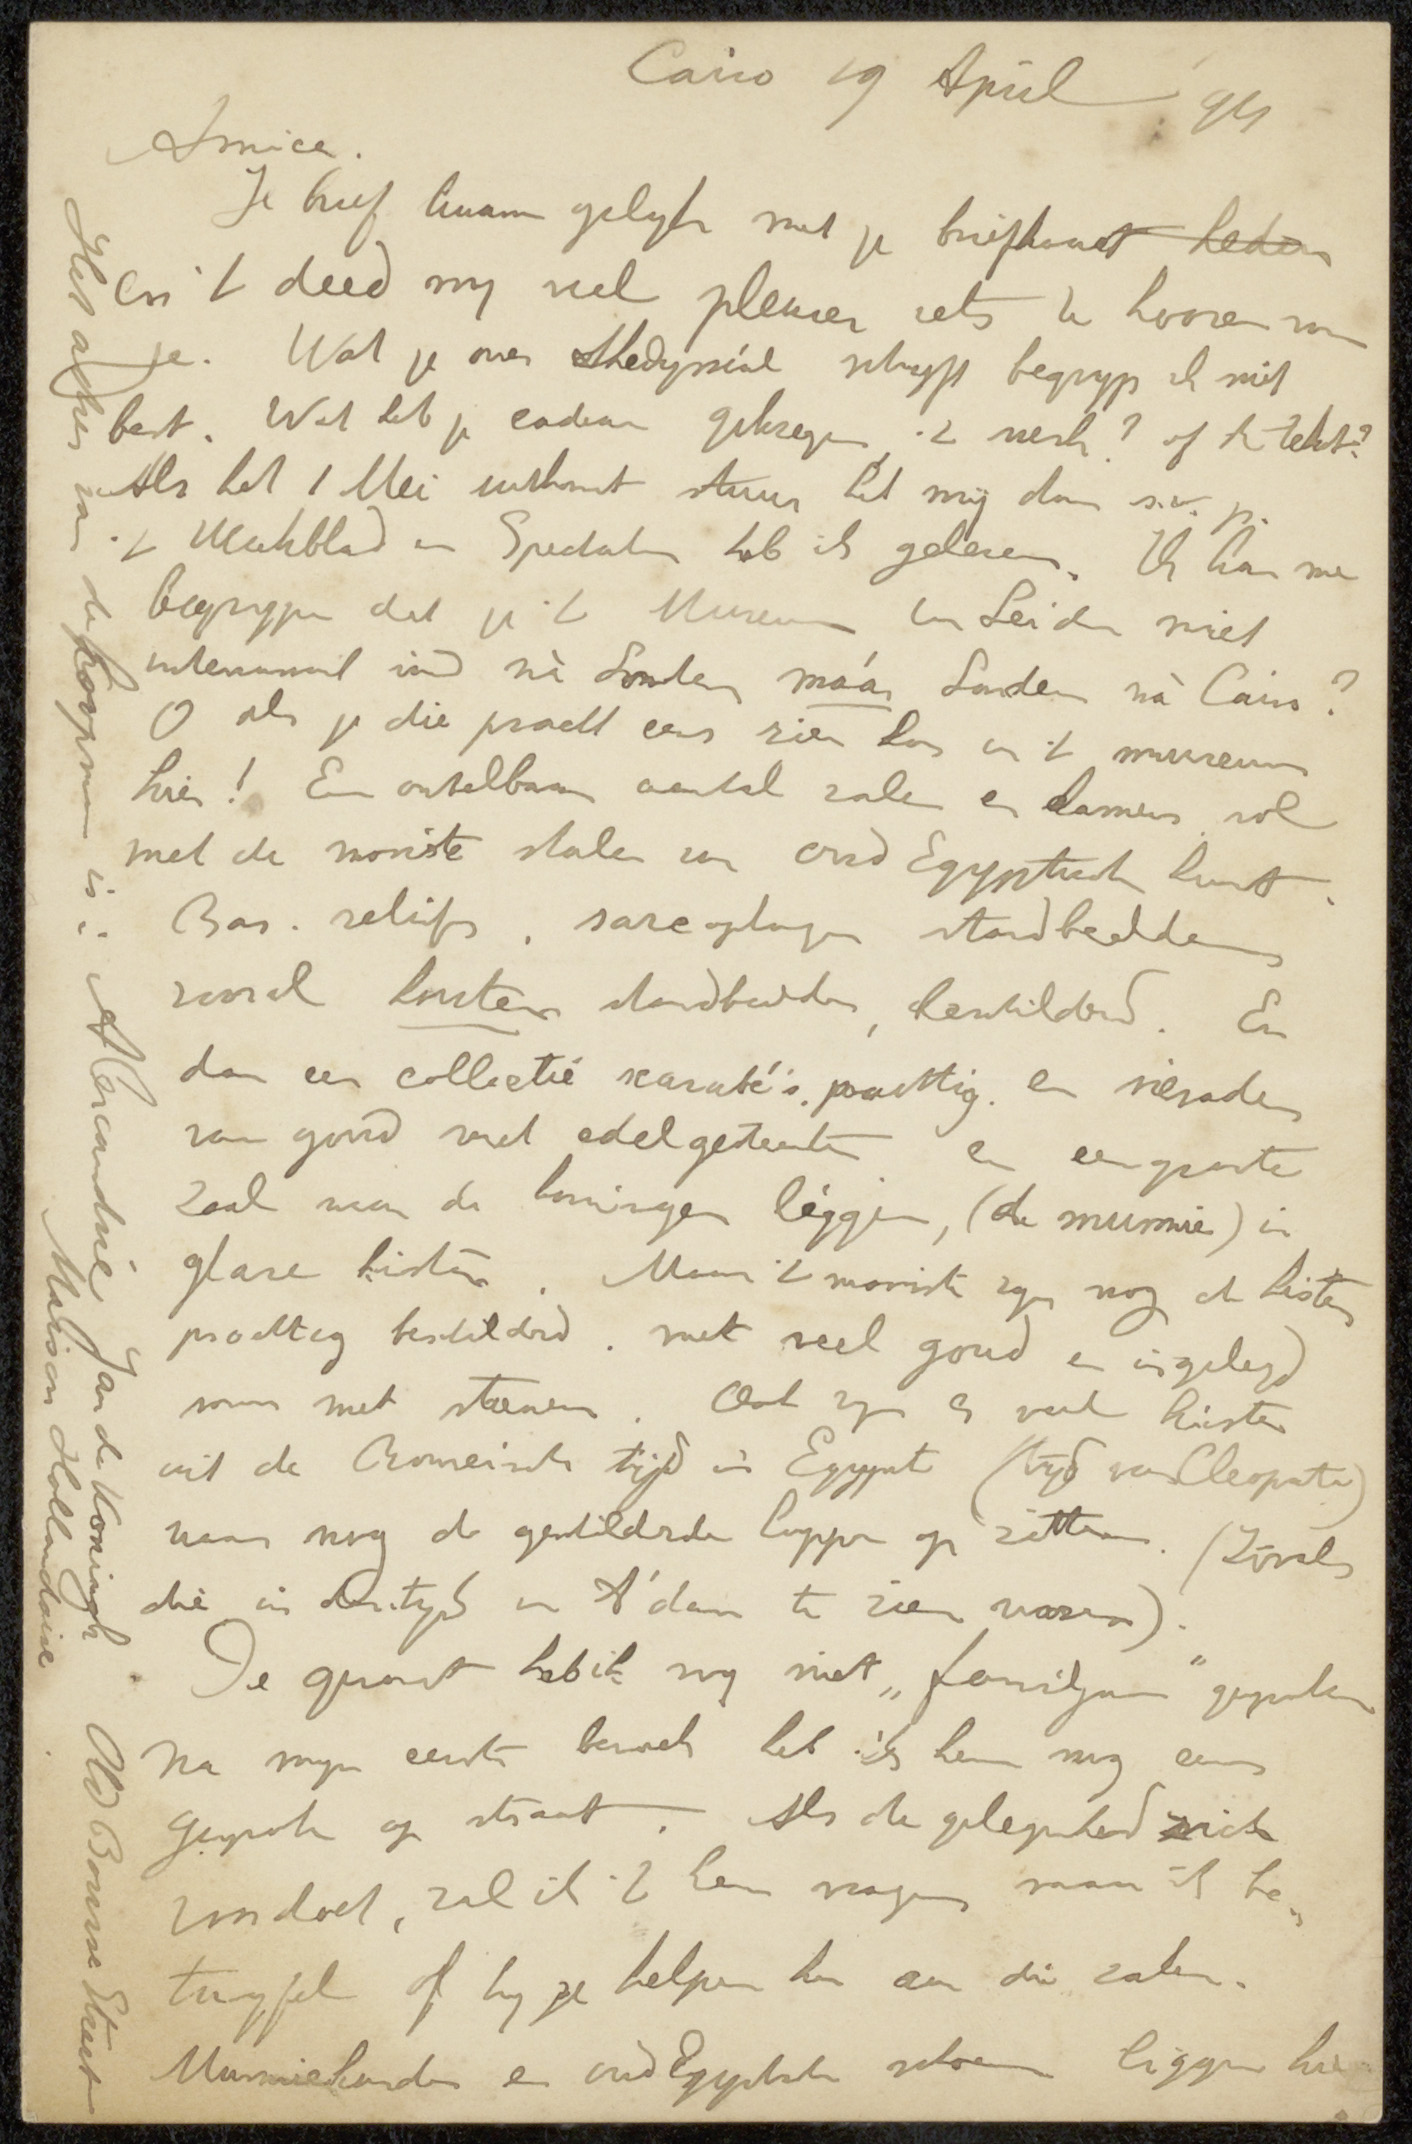 Cairo 19 April 94
Amice.
Je brief kwam gelyk met je briefkaart heden
en 't deed my veel plezier iets te hooren van
je. Wat je over schryft begryp ik niet
best. Wat heb je cadeau gekregen, 't werk? of de tekst?
Als het 1 Mei uitkomt stuur het mij dan s.v.p.
't Weekblad en Spectator heb ik gelezen. Ik kan me
begrypen dat je 't Museum in Leiden niet
interessant vind nà Londen máár Londen nà Cairo?
O als je die pracht eens zien kon in 't museum
hier! Een ontelbaar aantal zalen en kamers vol
met de mooiste stalen van oud Egyptische kunst.
Bas-reliefs, sarcophagen standbeelden
vooral houten standbeelden, beschilderd. En
dan een collectie scarabé's, prachtig. en sieraden
van goud met edelgesteenten en een groote
zaal waar de koningen liggen, (de mummie) in
glaze kisten. Maar 't mooiste zyn nog de kisten
prachtig beschilderd. met veel goud en ingelegd
soms met steenen. Ook zyn er veel kisten
uit de Romeinsche tijd in Egypte (tijd van Cleopatra)
waar nog de geschilderde koppen op zitten. (Zooals
die in der tyd in A'dam te zien waren).
De graaf heb ik nog niet „familjaar" gesproken
Na myn eerste bezoek heb ik hem nog eens
gesproken op straat. Als de gelegenheid zich
voordoet, zal ik 't hem vragen maar ik be-
twyfel of hy je helpen kan aan die zaken.
Mummiehanden en oud Egyptische schoenen liggen hier
Het adres van de Koopman is: Alexandrië Jan de Koningh
Maison Hollandaise Old Bourse Street